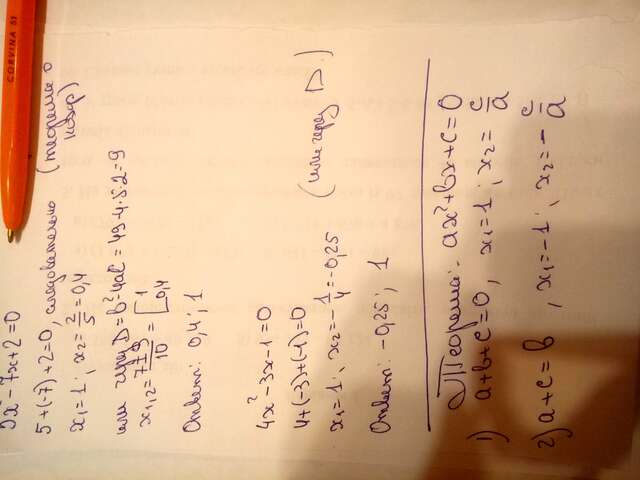 CORVINA 51
5x² - 7x + 2 = 0
5 + (-7) + 2 = 0, следовательно (теорема о коэф)
x₁ = 1; x₂ = 2/5 = 0,4
или через D = b² - 4ac = 49 - 4·5·2 = 9
x₁,₂ = 7±9/10 = [1 0,4
Ответ: 0,4; 1
4x² - 3x - 1 = 0
4 + (-3) + (-1) = 0
x₁ = 1; x₂ = -1/4 = -0,25 (или через D.)
Ответ: -0,25; 1
Теорема: ax² + bx + c = 0
1) a + b + c = 0, x₁ = 1; x₂ = c/a
2) a + c = b, x₁ = -1; x₂ = -c/a